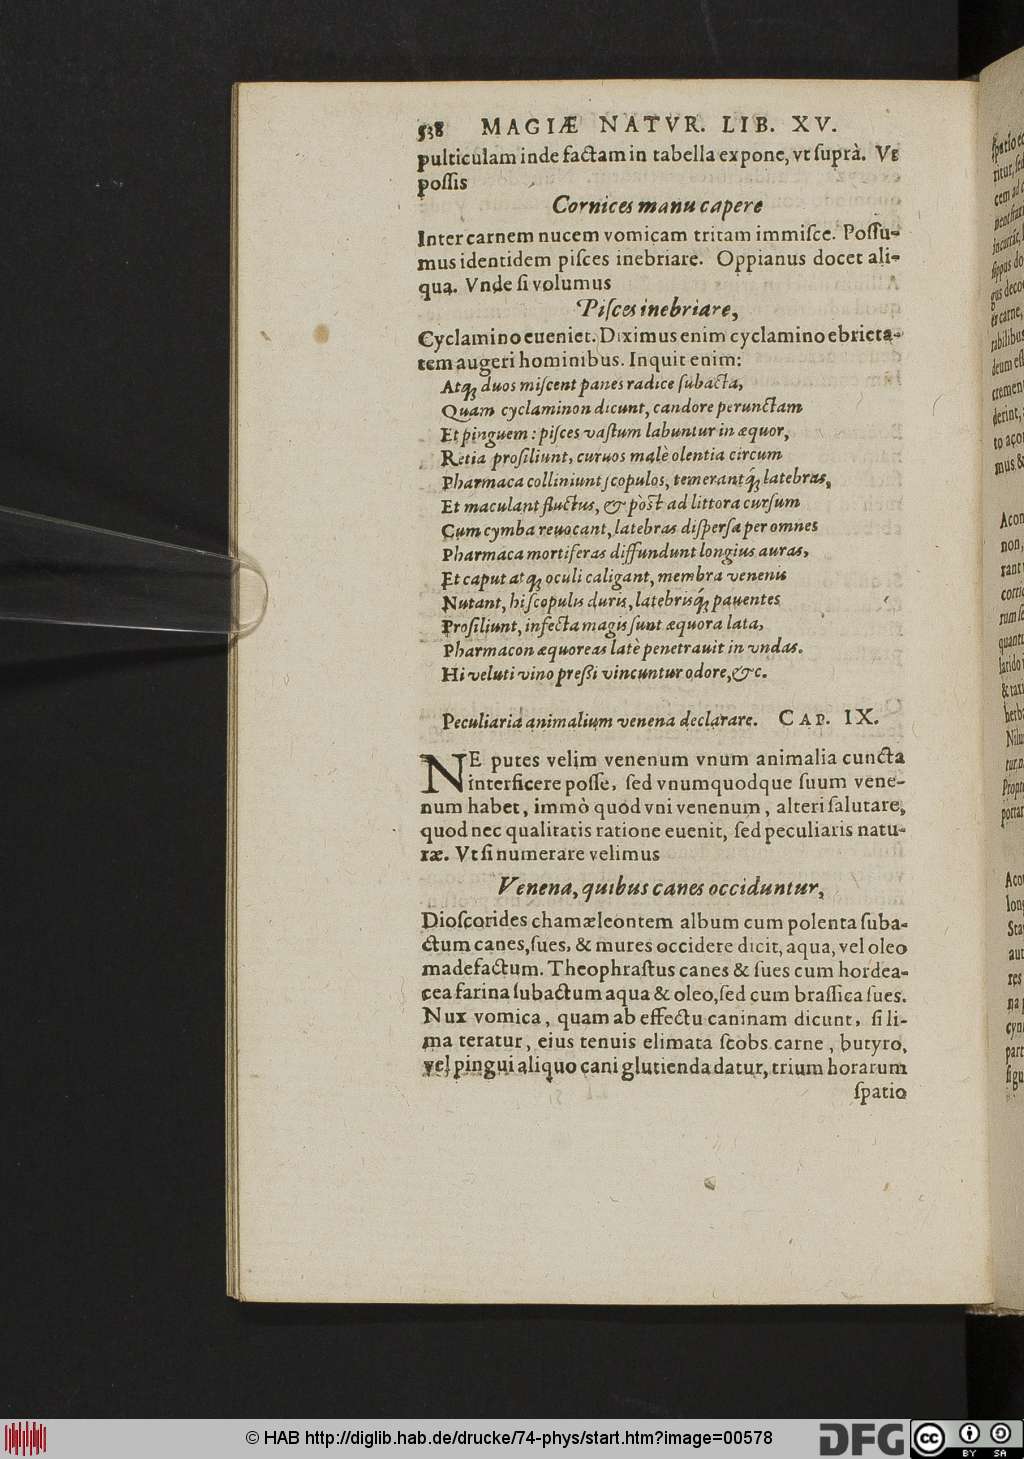 538 MAGIÆ NATVR. LIB. XV.
pulticulam inde factam in tabella expone, vt suprà. Vt
possis
Cornices manu capere
Inter carnem nucem vomicam tritam immisce. Possu-
mus identidem pisces inebriare. Oppianus docet ali-
qua. Vnde si volumus
Pisces inebriare,
Cyclamino eueniet. Diximus enim cyclamino ebrieta-
tem augeri hominibus. Inquit enim:
Atq; duos miscent panes radice subacta,
Quam cyclaminon dicunt, candore perunctam
Et pinguem: pisces vastum labuntur in æquor,
Retia prosiliunt, curuos malè olentia circum
Pharmaca colliniunt scopulos, temerantq́; latebras,
Et maculant fluctus, & pòst ad littora cursum
Cum cymba reuocant, latebras dispersa per omnes
Pharmaca mortiferas diffundunt longius auras,
Et caput atq; oculi caligant, membra venenis
Nutant, hi scopulis duris, latebrisq́; pauentes
Prosiliunt, infecta magis sunt æquora lata,
Pharmacon æquoreas latè penetrauit in vndas.
Hi veluti vino pressi vincuntur odore, &c.
Peculiaria animalium venena declarare. CAP. IX.
NE putes velim venenum vnum animalia cuncta
interficere posse, sed vnumquodque suum vene-
num habet, immò quod vni venenum, alteri salutare,
quod nec qualitatis ratione euenit, sed peculiaris natu-
ræ. Vt si numerare velimus
Venena, quibus canes occiduntur,
Dioscorides chamæleontem album cum polenta suba-
ctum canes, sues, & mures occidere dicit, aqua, vel oleo
madefactum. Theophrastus canes & sues cum hordea-
cea farina subactum aqua & oleo, sed cum brassica sues.
Nux vomica, quam ab effectu caninam dicunt, si li-
ma teratur, eius tenuis elimata scobs carne, butyro,
vel pingui aliquo cani glutienda datur, trium horarum
spatio
© HAB http://diglib.hab.de/drucke/74-phys/start.htm?image=00578
DFG
cc BY SA